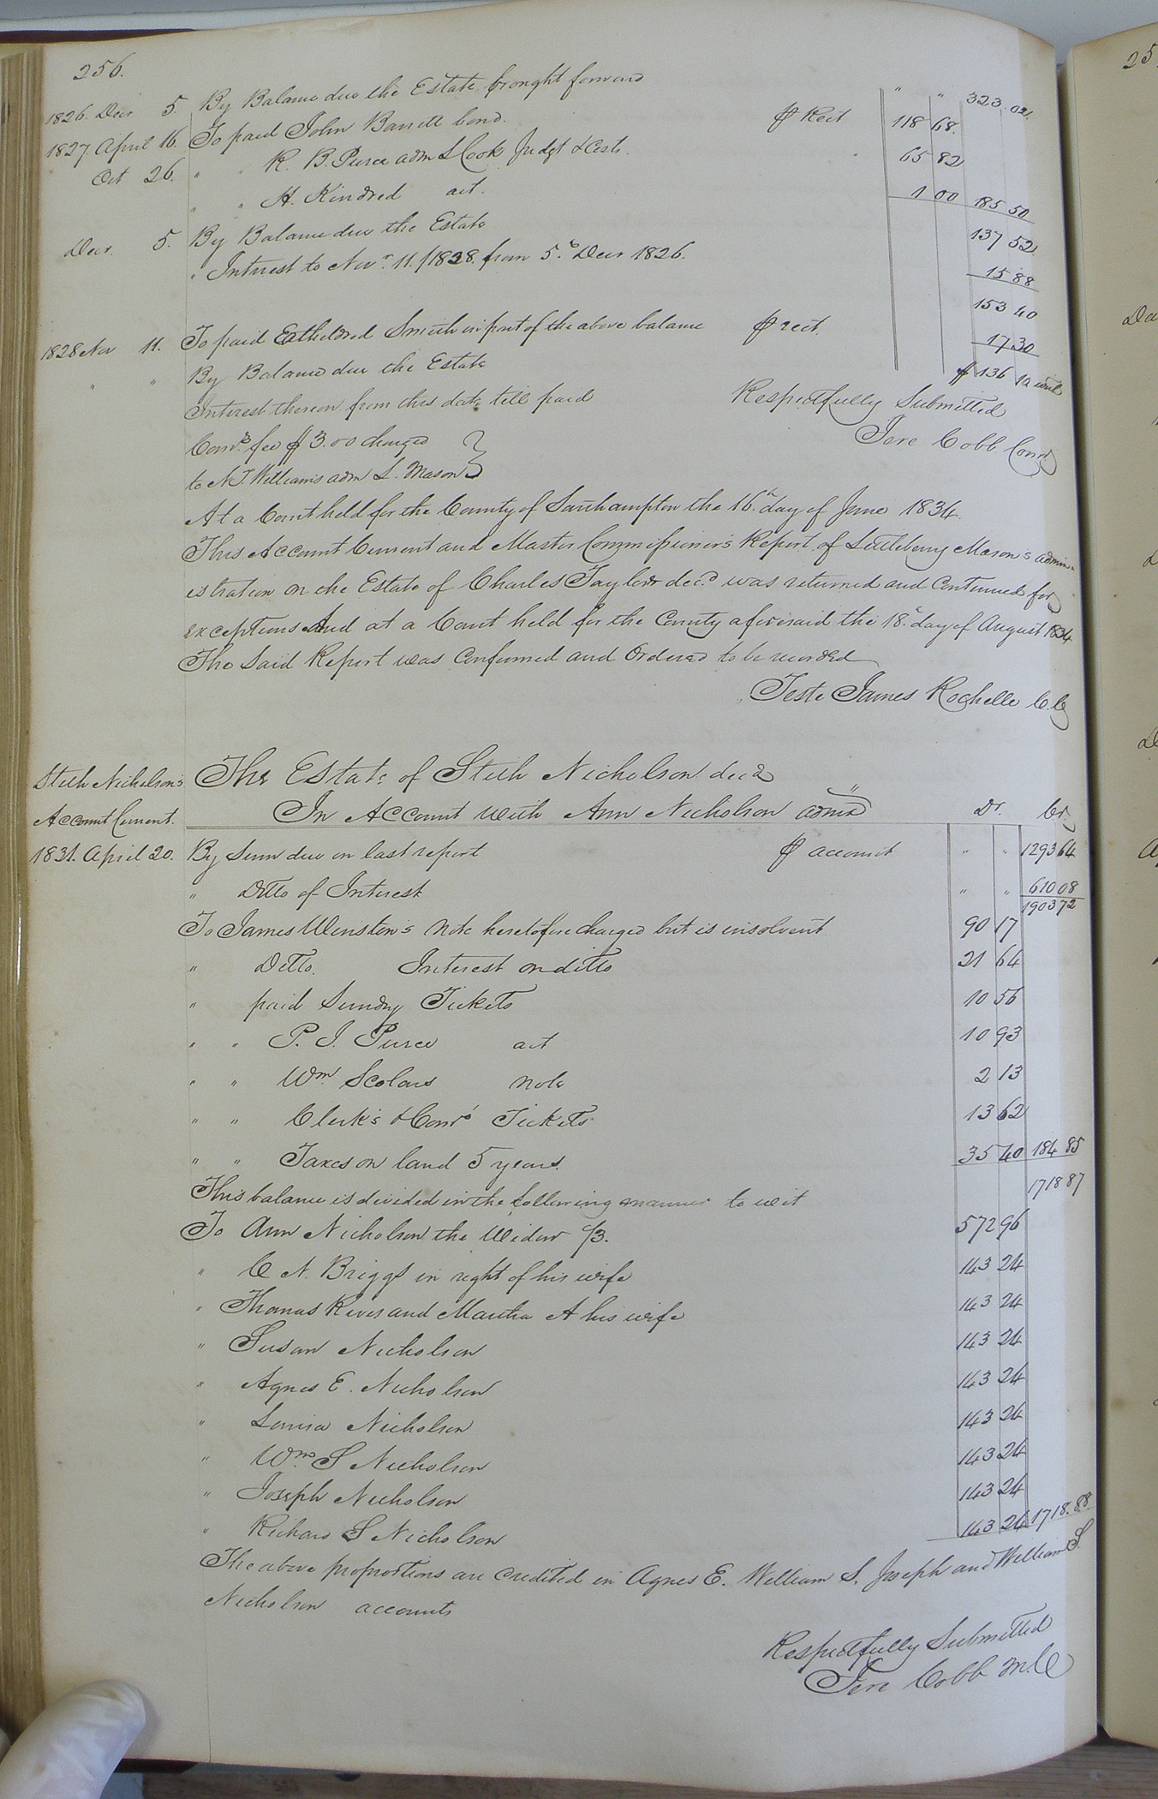 256.
1826. Decr 5. By Balance due the Estate brought forward " " 323.02
1827 April 16. To paid John Barrett bond. ⅌ Rect 118 68.
Oct 26. " " R. B. Purce adm L Cook Judgt & Costs. 65 82
" " H. Kindred act. 1 00 185 50
Decr. 5. By Balance due the Estate 137 52
" Interest to Novr. 11. 1828. from 5th Decr 1826. 15 88
153 40
1828 Nov 11. To paid Eatheldred Smith in part of the above balance ⅌ rect. 17 30
" " By Balance due the Estate $136 10
Interest thereon from this date till paid Respectfully Submitted
Comrs. fee $3.00 charged Jere Cobb Comr
to N T Williams adm L. Mason
At a Court held for the County of Southampton the 16th day of June 1834.
This Account Current and Master Commissioner's Report of Littleberry Mason's admin-
istration on the Estate of Charles Taylor decd. was returned and Continued for
exceptions And at a Court held for the County aforesaid the 18th day of August 1834.
The Said Report was Confirmed and Ordered to be recorded
Teste James Rochelle C.C
Stith Nicholson's The Estate of Stith Nicholson decd
Account Current. In Account with Ann Nicholson admx Dr. Cr.
1831. April 20. By Sum due on last report ⅌ account " " 1293 64
" Ditto of Interest " " 610 08
1903 72
To James Winston's Note heretofore charged but is insolvent 90 17
" Ditto. Interest on ditto 21 64
" paid Sundry Tickets 10 56
" " P. I. Purce act 10 93
" " Wm Scolars note 2 13
" " Clerk's & Comrs Tickets 13 62
" " Taxes on land 5 years. 35 40 184 85
1718 87
This balance is divided in the following manner to wit
To Ann Nicholson the Widow ⅓. 572 96
" C N. Briggs in right of his wife 143 24
" Thomas Rives and Martha A his wife 143 24
" Susan Nicholson 143 24
" Agnes E. Nicholson 143 24
" Louisa Nicholson 143 24
" Wm. S Nicholson 143 24
" Joseph Nicholson 143 24
" Richard S Nicholson 143 24 1718.88
The above proportions are Credited in Agnes E. William S. Joseph and William S.
Nicholson accounts
Respectfully Submitted
Jere Cobb M.C
25